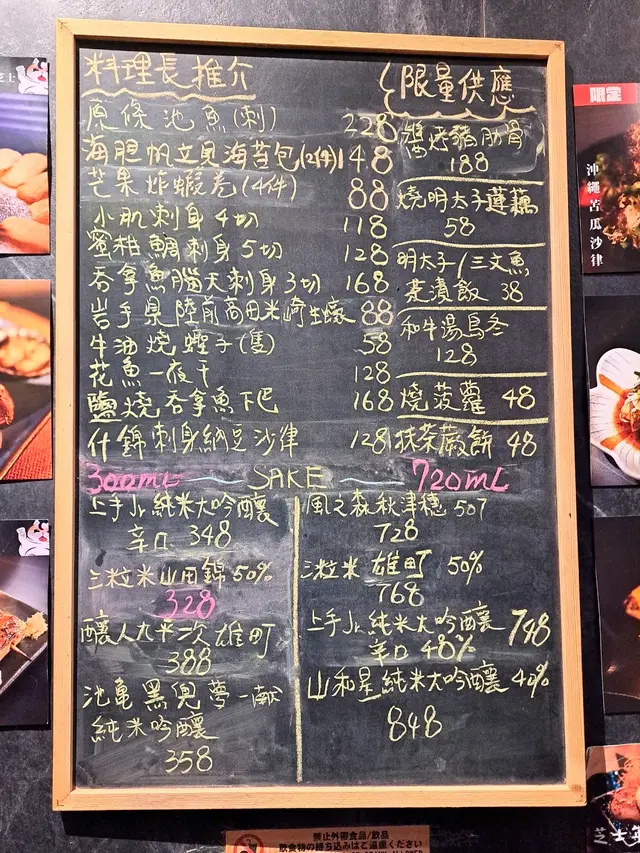 料理長推介
原條池魚(刺) 228
海胆帆立貝海苔包(2件) 148
芒果炸蝦卷(4件) 88
小肌刺身 4切 118
蜜柑鯛刺身 5切 128
吞拿魚腦天刺身 3切 168
岩手県陸前高田米崎生蠔 88
牛油燒蟶子(隻) 58
花魚一夜干 128
鹽燒吞拿魚下巴 168
什錦刺身納豆沙律 128
限量供應
醬烤豬肋骨
188
燒明太子蓮藕
58
明太子/三文魚
茶漬飯 38
和牛湯烏冬
128
燒菠蘿 48
抹茶蕨餅 48
300mL SAKE 720mL
上手Jr.純米大吟釀
辛口 348
三粒米山田錦 50%
328
釀人九平次 雄町
388
池亀 黑兜 夢一献
純米吟釀
358
風之森秋津穗 507
728
三粒米 雄町 50%
768
上手Jr.純米大吟釀 748
辛口 48%
山和星純米大吟釀 40%
848
芝士
限定
沖繩苦瓜沙律
禁止外帶食品/飲品
飲食物の持ち込みはご遠慮ください